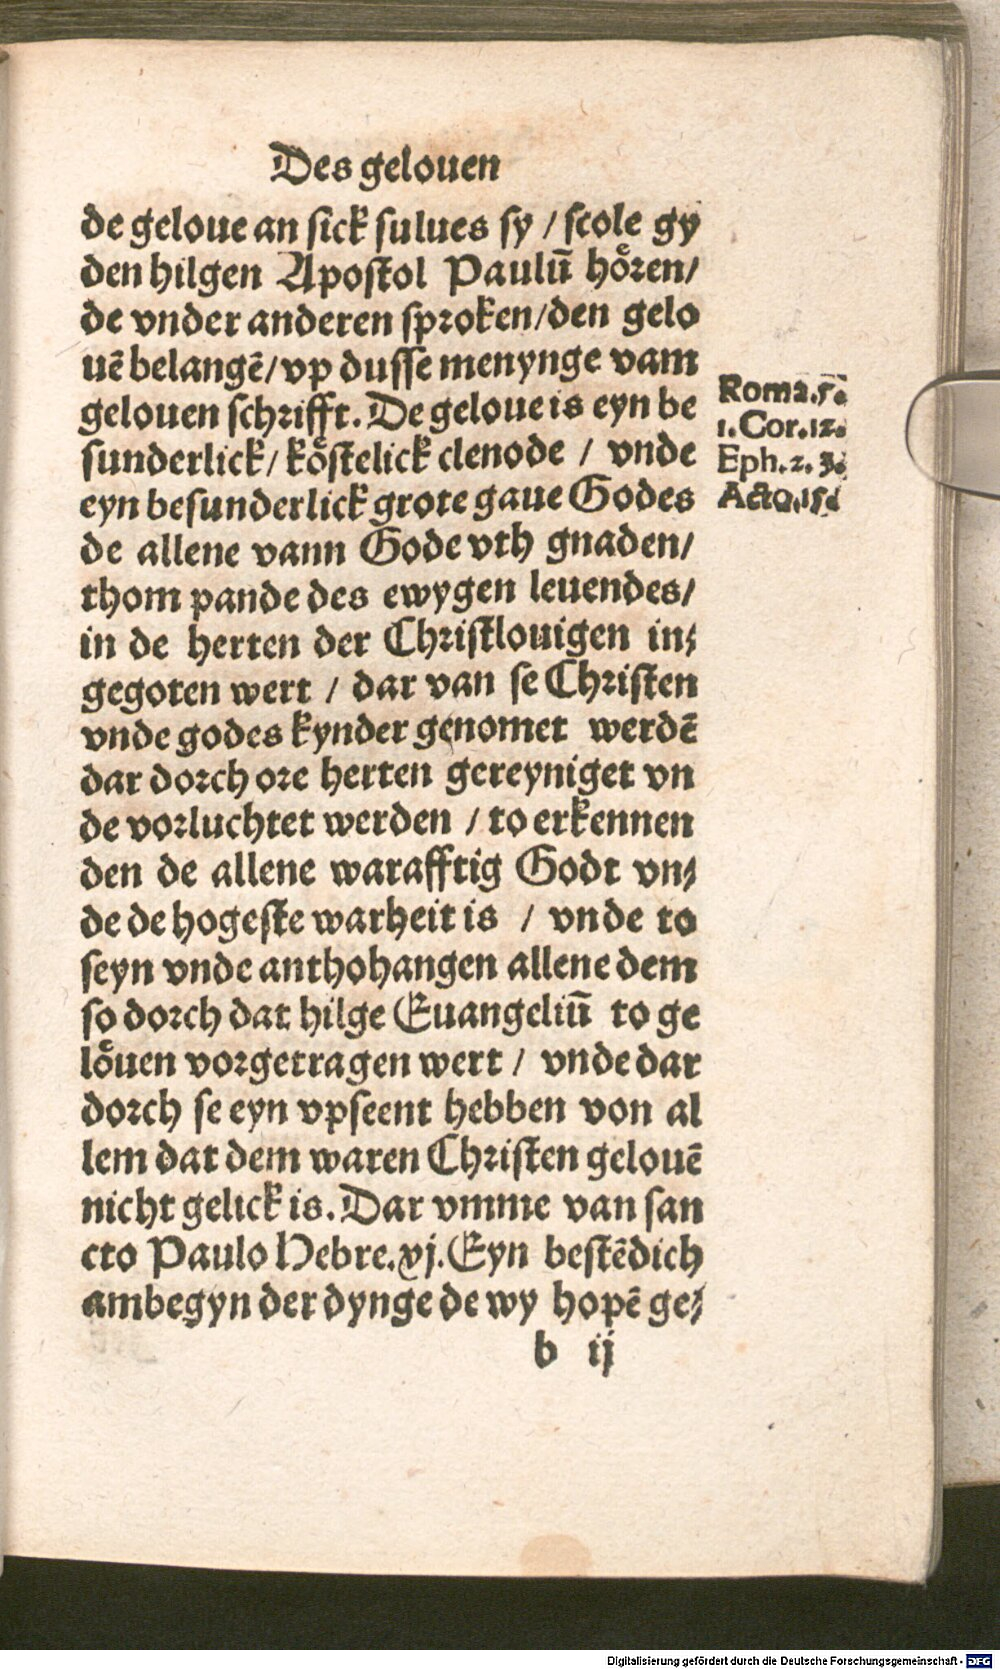 Des gelouen
de geloue an sick sulues sy / scole gy
den hilgen Apostol Paulū hoͤren/
de vnder anderen sproken/den gelo
uē belangē/vp dusse menynge vam
gelouen schrifft. De geloue is eyn be
sunderlick/ koͤstelick clenode / vnde
eyn besunderlick grote gaue Godes
de allene vann Gode vth gnaden/
thom pande des ewygen leuendes/
in de herten der Christlouigen in⸗
gegoten wert / dar van se Christen
vnde godes kynder genomet werdē
dar dorch ore herten gereyniget vn
de vorluchtet werden / to erkennen
den de allene warafftig Godt vn⸗
de de hogeste warheit is / vnde to
seyn vnde anthohangen allene dem
so dorch dat hilge Euangeliū to ge
loͤuen vorgetragen wert / vnde dar
dorch se eyn vpseent hebben von al
lem dat dem waren Christen gelouē
nicht gelick is. Dar vmme van san
cto Paulo Hebre.xj. Eyn bestēdich
ambegyn der dynge de wy hopē ge⸗
b ij
Roma.5.
1. Cor.12.
Eph.2.3.
Acto.15.
Digitalisierung gefördert durch die Deutsche Forschungsgemeinschaft - DFG